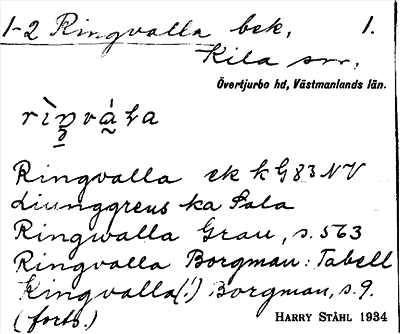 1-2 Ringvalla bek. 1.
Kila sn.,
Övertjurbo hd, Västmanlands län.
Ringvalla ek k G83 NV
Ljunggrens ka Sala
Ringwalla Grau, s. 563
Ringvalla Borgman: Tabell
Ringvalla(!) Borgman, s. 9.
(forts.) HARRY STÅHL 1934